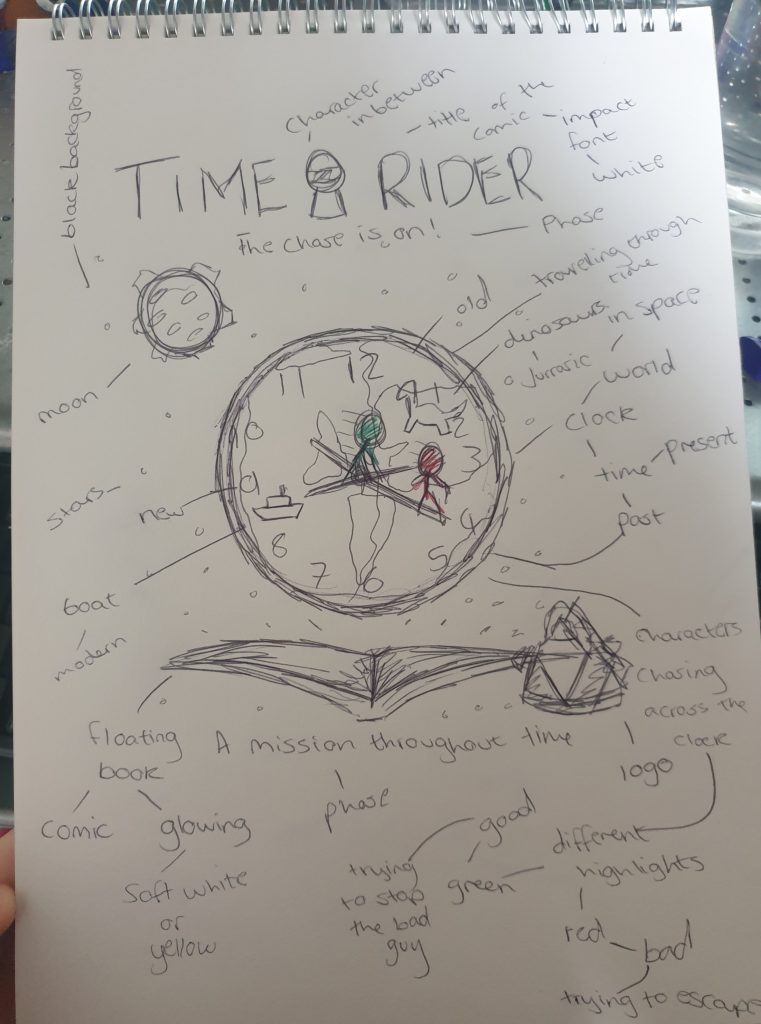 black background
Character
in between
title of the
comic
impact
font
white
TIME RIDER
The chase is on!
Phase
old
travelling through
time
dinosaurs
in space
Jurrasic
world
moon
11
12
clock
time
present
past
stars
new
9
4
8
5
7
6
boat
modern
characters
chasing
across the
clock
floating
book
A mission throughout time
logo
phase
comic
glowing
good
different
highlights
trying
to stop
the bad
guy
green
Soft white
or
yellow
red
bad
trying to escape